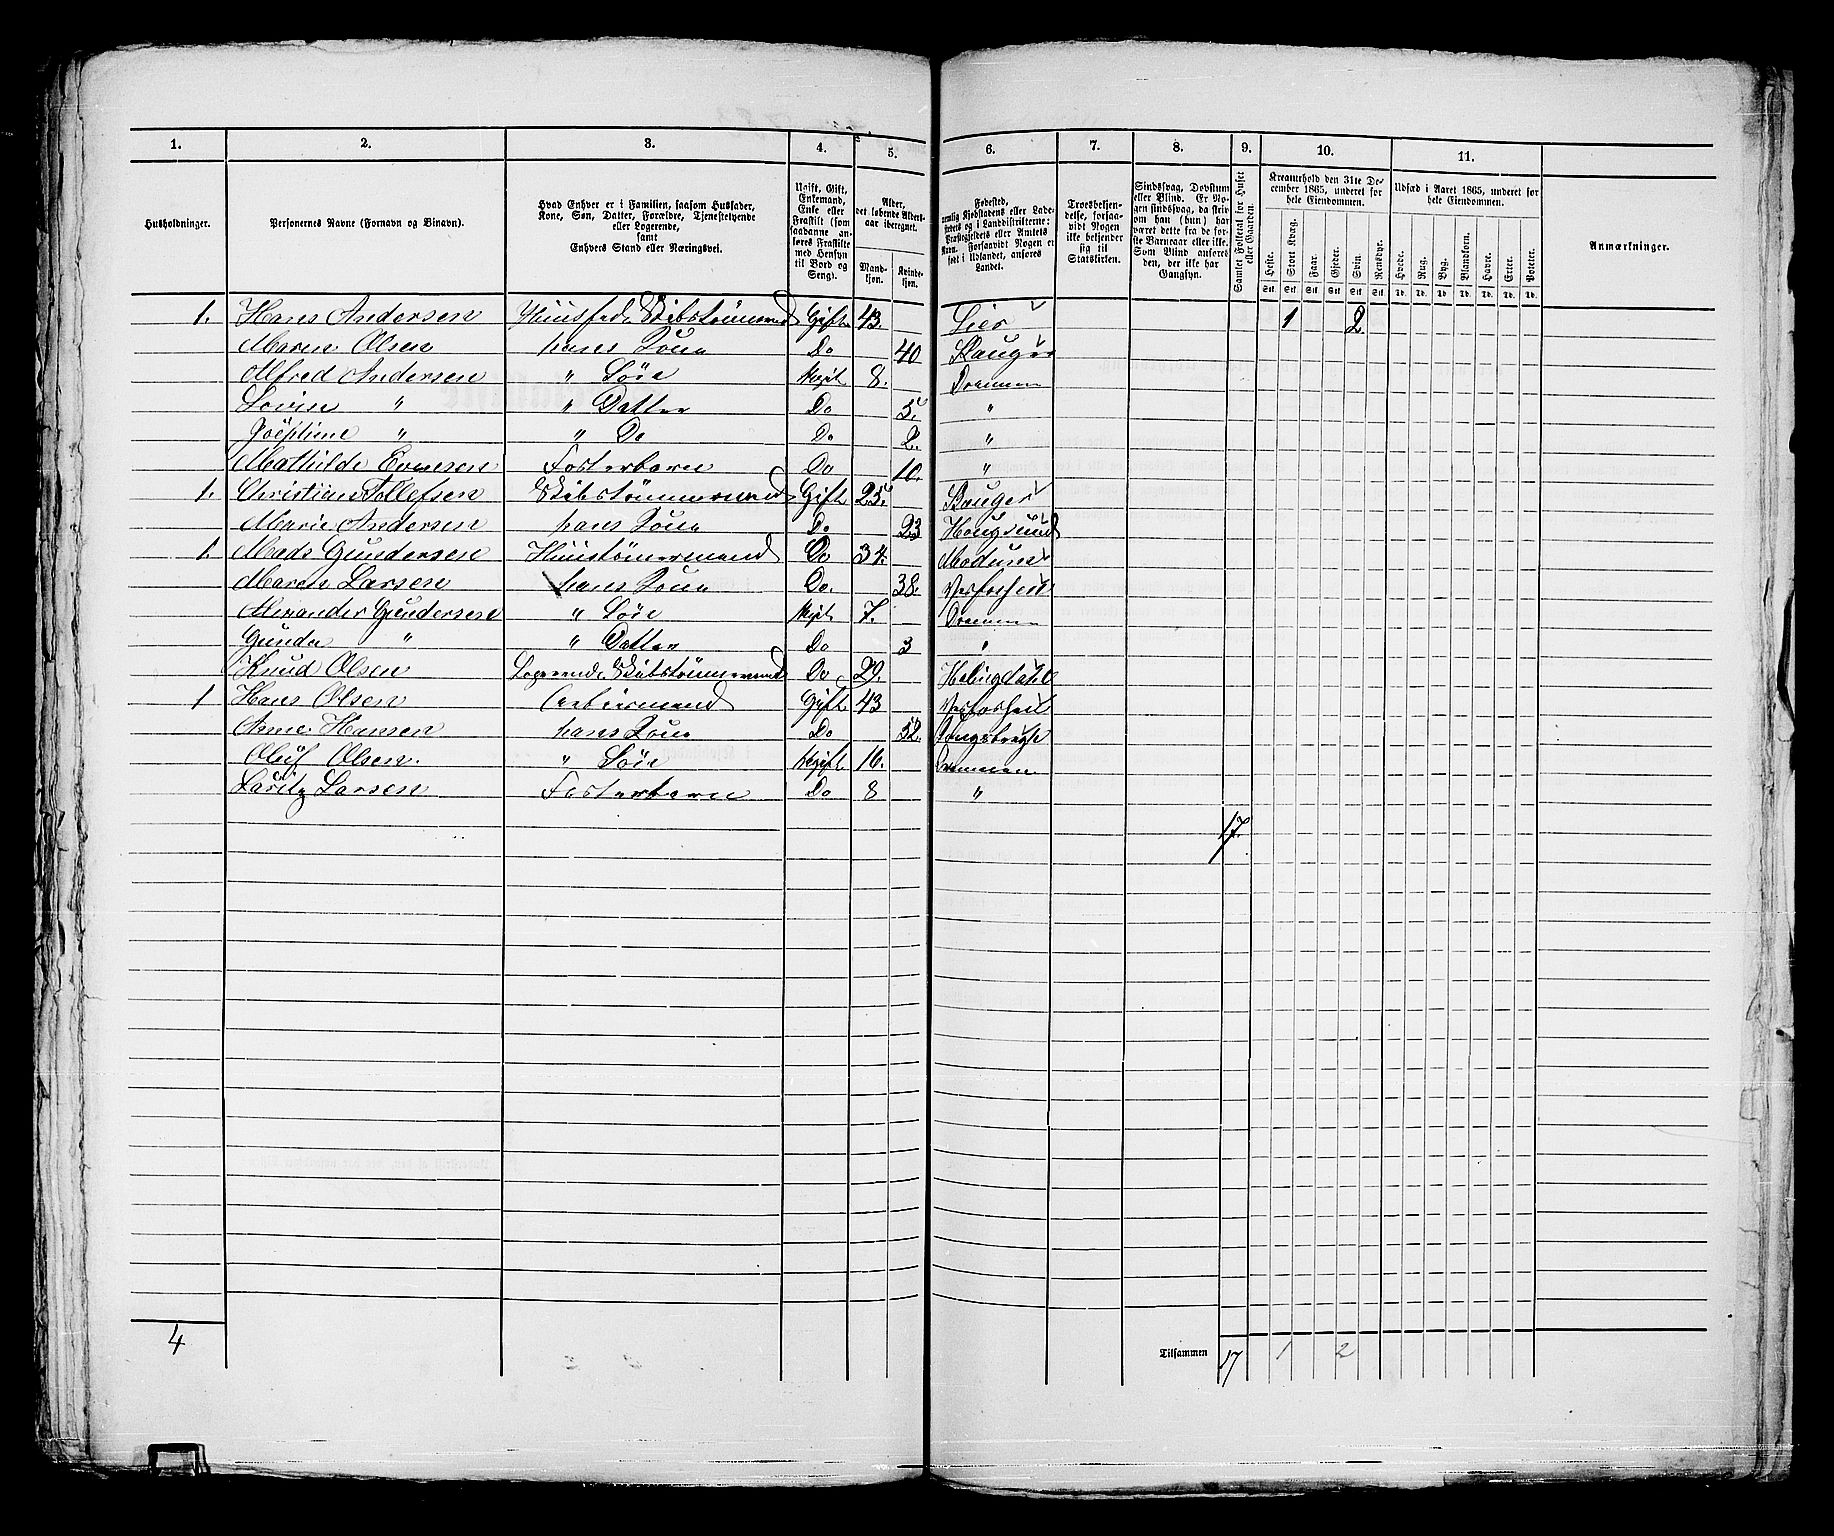 1. 2. 3. 4. 5. 6. 7. 8. 9. 10. 11.
Husholdninger.
Personernes Navne (Fornavn og Binavn).
Hvad Enhver er i Familien, saasom Husfader,
Kone, Søn, Datter, Forældre, Tjenestetyende
eller Logerende,
samt
Enhvers Stand eller Næringsvei.
Ugift, Gift,
Enkemand,
Enke eller
Fraskilt (som
saadanne an-
føres Fraskilte
med Hensyn
til Bord og
Seng).
Alder,
det løbende Alders-
aar iberegnet.
Mand-
kjøn.
Kvinde-
kjøn.
Fødested,
nemlig Kjøbstadens eller Lade-
stedets og i Landdistrikterne:
Præstegjeldets eller Amtets
Navn. Forsaavidt Nogen er
født i Udlandet, anføres
Landet.
Troesbekjen-
delse, forsaa-
vidt Nogen
ikke bekjender
sig til
Statskirken.
Sindssvag, Døvstum
eller Blind. Er No-
gen sindssvag, da skriv
om han (hun) har
været dette fra de før-
ste Barneaar eller ikke.
Som Blind anføres
den, der ikke har
Gangsyn.
Samlet Folketal for Huset
eller Gaarden.
Kreaturhold den 31te De-
cember 1865, underet for
hele Eiendommen.
Heste. Stort Kvæg. Faar. Gjeder. Svin. Rensdyr.
Stk. Stk. Stk. Stk. Stk. Stk.
Udsæd i Aaret 1865, underet for
hele Eiendommen.
Hvede. Rug. Byg. Blandkorn. Havre. Erter. Poteter.
Td. Td. Td. Td. Td. Td. Td.
Anmærkninger.
1. Hans Andersen Huusfad. Skibstømmermand Gift 43. Lier 1 2
Maren Olsen hans Kone Do 40 Skauger
Alfred Andersen " Søn Ugift 8. Drammen
" " Datter Do 5. "
" " Do Do 2. "
Mathilde Evensen Fosterbarn Do 10. "
1. Christian Tollefsen Skibstømmermand Gift 25. Skauger
Marie Andersen hans Kone Do 23 Hougsund
1. Mads Gundersen Huustømmermand Do 34. Modum
Maren Larsen hans Kone Do. 38.
Alexander Gundersen " Søn Ugift 7. Drammen
Gunda " " Datter Do 3 "
Knud Olsen Logerende Skibstømmermand Do 29. Halingdahl
1 Hans Olsen Gift 43
Anne Hansen hans Kone Do 52.
Oluf Olsen. " Søn Ugift 16. Drammen
Lauritz Larsen Fosterbarn Do 8 "
17.
4
Tilsammen 17 1 2